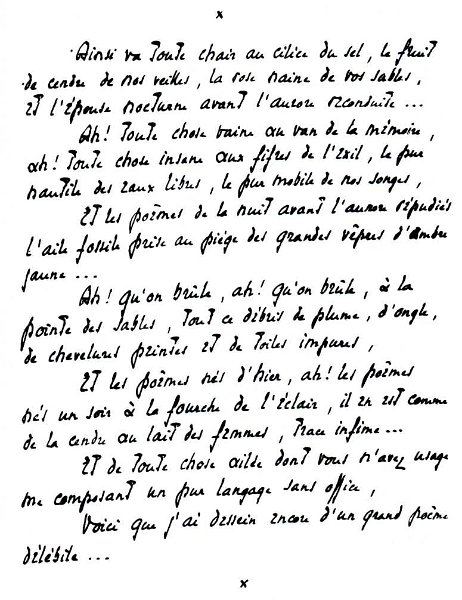 x
Ainsi va toute chair au cilice du sel, le fruit
de cendre de nos veilles, la rose naine de vos sables,
et l'épouse nocturne avant l'aurore reconduite ...
Ah ! toute chose vaine au van de la mémoire,
ah ! toute chose insane aux fifres de l'exil, le pur
nautile des eaux libres, le pur mobile de nos songes,
Et les poèmes de la nuit avant l'aurore répudiés
l'aile fossile prise au piège des grandes vêpres d'ambre
jaune ...
Ah ! qu'on brûle, ah ! qu'on brûle, à la
pointe des sables, tout ce débris de plume, d'ongle,
de chevelures peintes et de toiles impures,
Et les poèmes nés d'hier, ah ! les poèmes
nés un soir à la fourche de l'éclair, il en est comme
de la cendre au lait des femmes, trace infime ...
Et de toute chose ailée dont vous n'avez usage
me composant un pur langage sans office,
Voici que j'ai dessein encore d'un grand poème
délébile ...
x